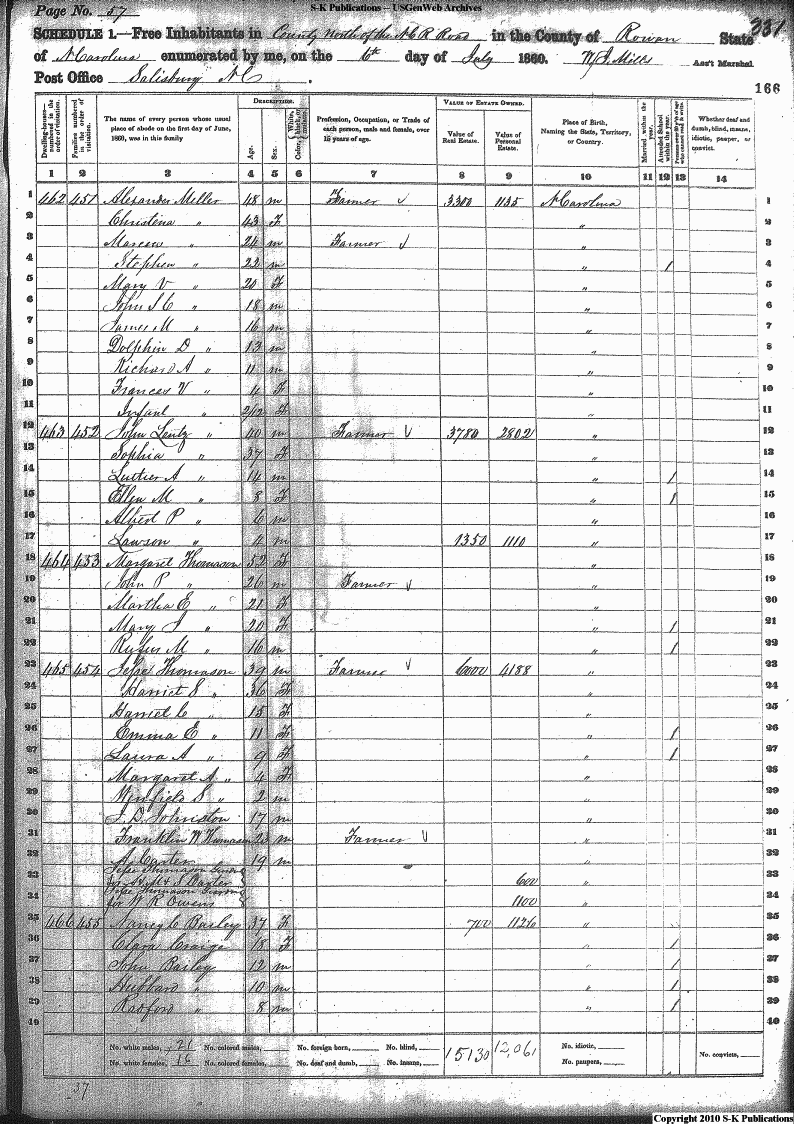 S-K Publications – USGenWeb Archives
Page No. 57
SCHEDULE 1.—Free Inhabitants in County North of the N C R Road in the County of Rowan State 331
of N Carolina enumerated by me, on the 6th day of July 1860. W J Mills Ass't Marshal
Post Office Salisbury N C
166
Dwelling-houses—numbered in the order of visitation.
Families numbered in the order of visitation.
The name of every person whose usual place of abode on the first day of June, 1860, was in this family
DESCRIPTION.
Age.
Sex.
Color, White, black, or mulatto.
Profession, Occupation, or Trade of each person, male and female, over 15 years of age.
VALUE OF ESTATE OWNED.
Value of Real Estate.
Value of Personal Estate.
Place of Birth, Naming the State, Territory, or Country.
Married within the year.
Attended School within the year.
Whether deaf and dumb, blind, insane, idiotic, pauper, or convict.
1 2 3 4 5 6 7 8 9 10 11 12 13 14
1 462 451 Alexander Miller 48 m Farmer 3300 1135 N Carolina 1
2 Christena " 43 F " 2
3 " 24 m Farmer " 3
4 Stephen " 22 m " 1 4
5 Mary V " 20 F " 5
6 John S C " 18 m " 6
7 James M " 16 m " 7
8 Dolphin D " 13 m " 8
9 Richard A " 11 m " 9
10 Frances V " 4 F " 10
11 Infant " 2/12 F " 11
12 463 452 John Lentz " 40 m Farmer 3780 2802 " 12
13 Sophia " 37 F " 13
14 Luther A " 14 m " 1 14
15 Ellen M " 8 F " 1 15
16 Albert P " 6 m " 16
17 Lawson " 4 m 1350 1110 " 17
18 464 453 Margaret Thomason 52 F " 18
19 John P " 26 m Farmer " 19
20 Martha E " 21 F " 20
21 Mary J " 20 F " 1 21
22 Rufus M " 16 m " 1 22
23 465 454 Jesse Thomason 39 m Farmer 6000 4188 " 23
24 Harriet S " 36 F " 24
25 Harriet C " 15 F " 25
26 Emma E " 11 F " 1 26
27 Laura A " 9 F " 1 27
28 Margaret A " 4 F " 28
29 Winfield S " 2 m " 29
30 J. D. Johnston 17 m " 30
31 Franklin W Thomason 23 m Farmer " 31
32 A. Carter 19 m " 32
33 Jesse Thomason
for A. M & S Carter 600 33
34 Jesse Thomason
for W R Owens 1100 34
35 466 455 Nancy C Bailey 37 F 700 1126 " 35
36 Clara Craige 18 F " 1 36
37 John Bailey 12 m " 1 37
38 Hubbard " 10 m " 1 38
39 Radford " 8 m " 1 39
40 40
No. white males, 21 No. colored males, No. foreign born, No. blind, 15130 12,061 No. idiotic, No. convicts,
No. white females, 16 No. colored females, No. deaf and dumb, No. insane, No. paupers,
37
Copyright 2010 S-K Publications